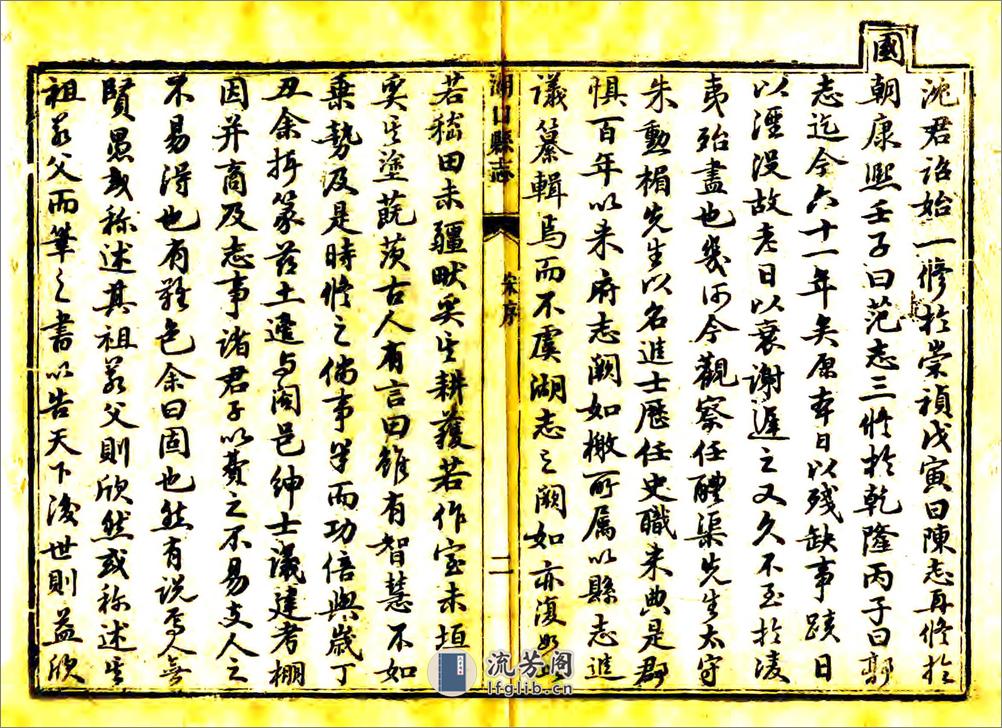 沈君詔始一修於崇禎戊寅曰陳志再修於
國
朝康熙壬子曰范志三修於乾隆丙子曰郭
志迄今六十一年矣原本日以殘缺事蹟日
以湮沒故老日以衰謝遲之又久不至於淩
夷殆盡也幾何今觀察任醴渠先生太守
朱勳楣先生以名進士歷任史職来典是郡
惧百年以来府志闕如檄所属以縣志進
議纂輯焉而不虞湖志之闕如亦復如
湖口縣志
宋序
二
若嵇田未疆畎奚生耕蒦若作室未垣
奚生塗蔇茨古人有言曰雖有智慧不如
乗勢及是時修之倘事半而功倍與歲丁
丑余捋篆茲土遂与闔邑紳士議建考棚
因并商及志事諸君子以費之不易支人之
不易得也有難色余曰固也然有説焉人無
賢愚或称述其祖若父則欣然或称述生
祖若父而筆之書以告天下後世則益欣
流芳阁
lfglib.cn